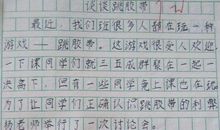 谈谈跳胶带
最近,我们班很多人都在玩一种
游戏——跳胶带。这游戏很受人欢迎
一下课同学们就三五成群聚在一起一
决高下,但有一些同学竟上课也在玩
为了让同学们正确认识跳胶带的利弊
杨老师举行了一次讨论会。